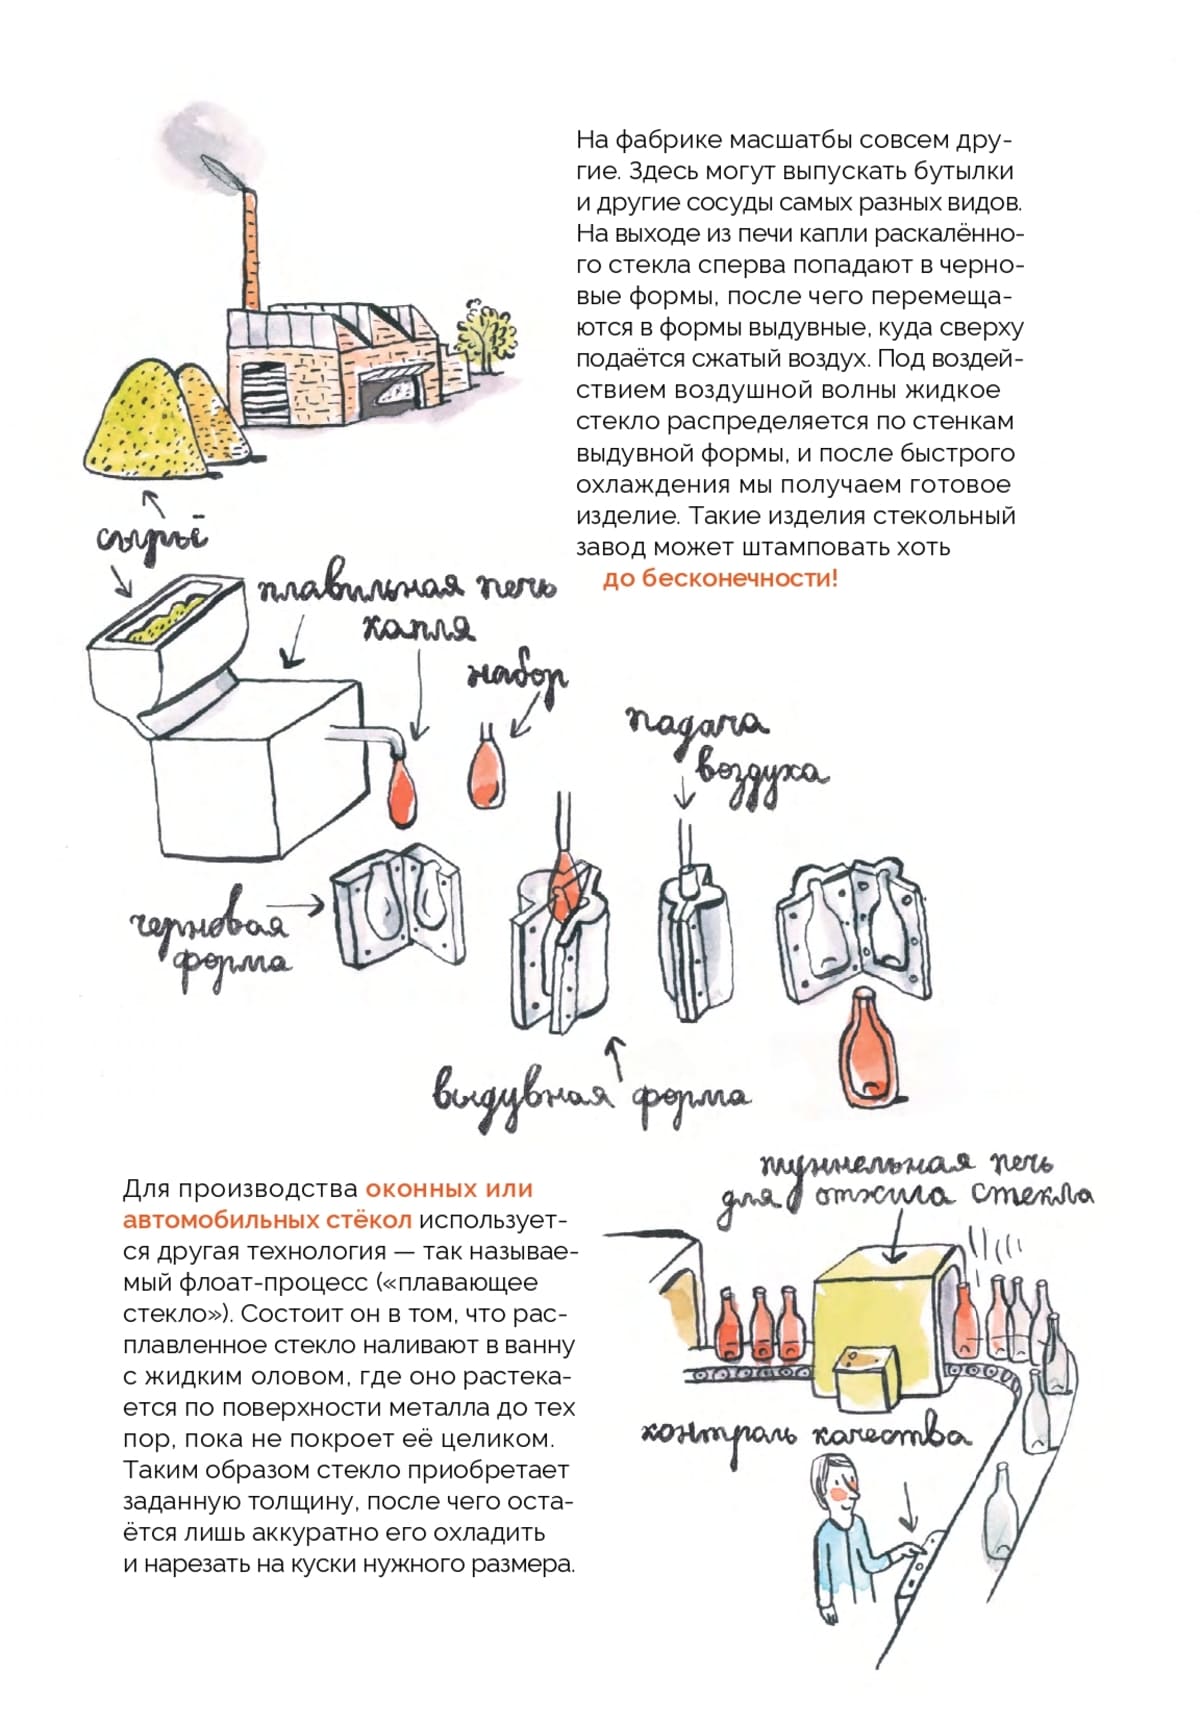 На фабрике масшатбы совсем дру-
гие. Здесь могут выпускать бутылки
и другие сосуды самых разных видов.
На выходе из печи капли раскалённо-
го стекла сперва попадают в черно-
вые формы, после чего перемеща-
ются в формы выдувные, куда сверху
подаётся сжатый воздух. Под воздей-
ствием воздушной волны жидкое
стекло распределяется по стенкам
выдувной формы, и после быстрого
охлаждения мы получаем готовое
изделие. Такие изделия стекольный
завод может штамповать хоть
до бесконечности!
сырьё
плавильная печь
капля
набор
падача
воздуха
черновая
форма
выдувная форма
туннельная печь
для отжига стекла
контроль качества
Для производства оконных или
автомобильных стёкол использует-
ся другая технология — так называе-
мый флоат-процесс («плавающее
стекло»). Состоит он в том, что рас-
плавленное стекло наливают в ванну
с жидким оловом, где оно растека-
ется по поверхности металла до тех
пор, пока не покроет её целиком.
Таким образом стекло приобретает
заданную толщину, после чего оста-
ётся лишь аккуратно его охладить
и нарезать на куски нужного размера.